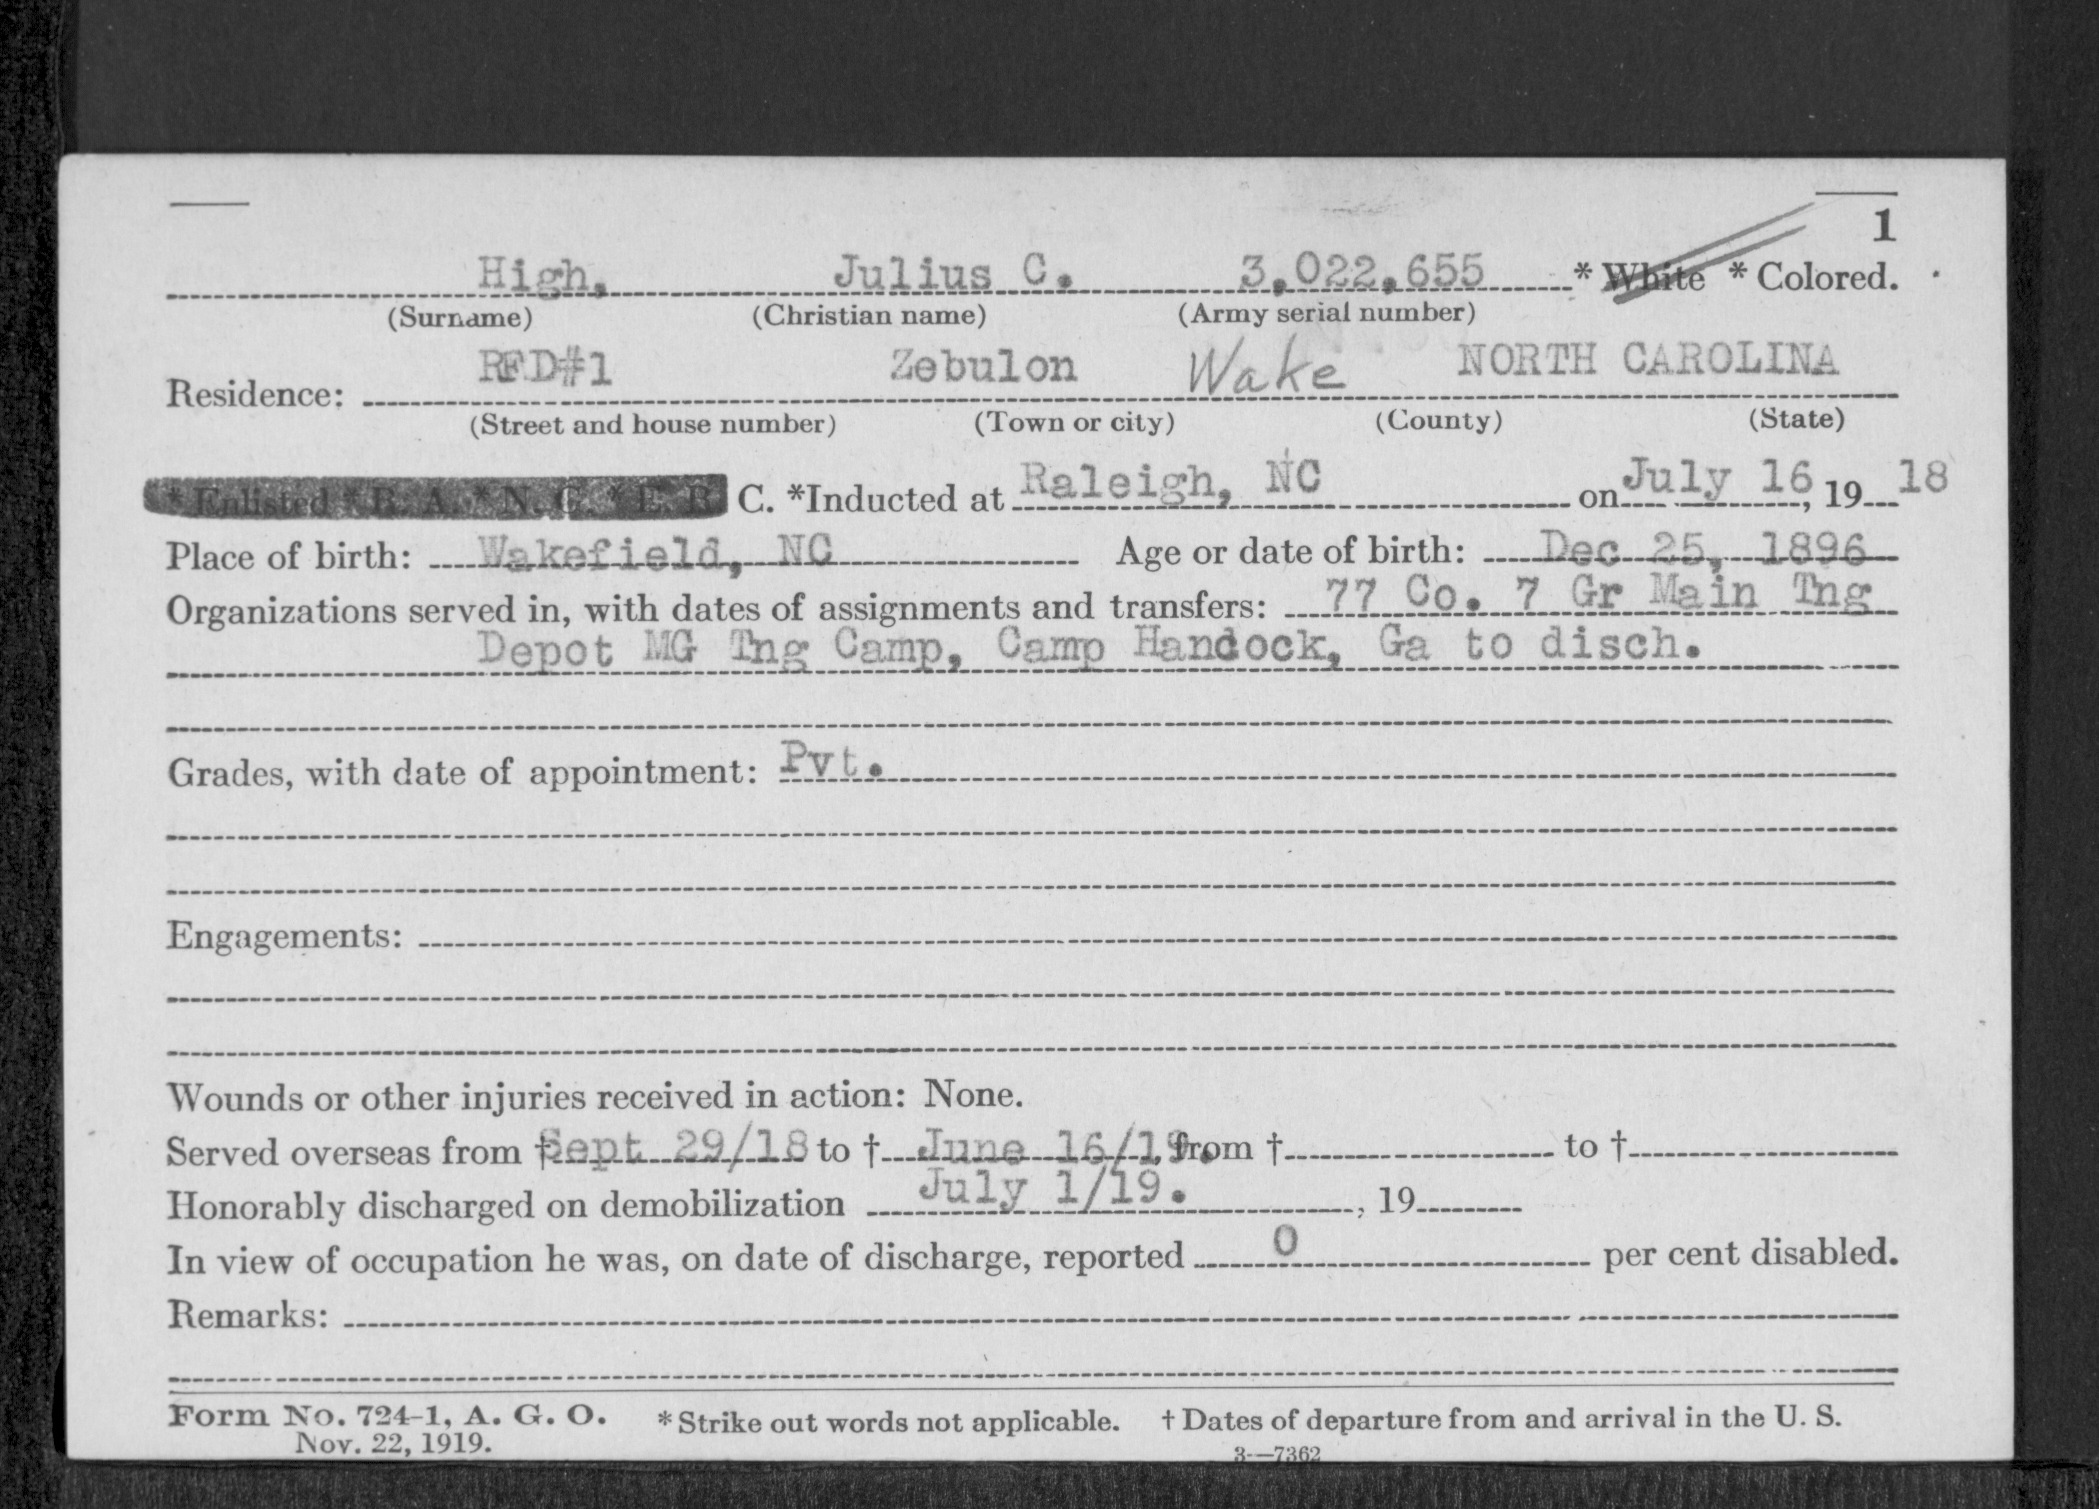 1
High, Julius C. 3,022,655 * White * Colored.
(Surname) (Christian name) (Army serial number)
Residence: RFD#1 Zebulon Wake NORTH CAROLINA
(Street and house number) (Town or city) (County) (State)
* Enlisted * R. A. * N. G. * E. R. C. *Inducted at Raleigh, NC on July 16, 19 18
Place of birth: Wakefield, NC Age or date of birth: Dec 25, 1896
Organizations served in, with dates of assignments and transfers: 77 Co. 7 Gr Main Tng
Depot MG Tng Camp, Camp Handock, Ga to disch.
Grades, with date of appointment: Pvt.
Engagements:
Wounds or other injuries received in action: None.
Served overseas from † Sept 29/18 to † June 16/19. from † to †
Honorably discharged on demobilization July 1/19. , 19
In view of occupation he was, on date of discharge, reported 0 per cent disabled.
Remarks:
Form No. 724-1, A. G. O. * Strike out words not applicable. † Dates of departure from and arrival in the U. S.
Nov. 22, 1919. 3—7362